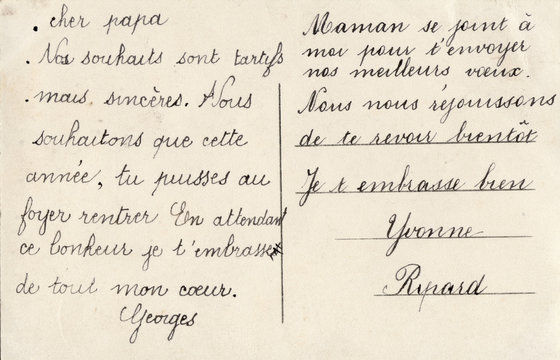 . cher papa
. Nos souhaits sont tartifs
. mais. sincères. Nous
souhaitons que cette
année, tu puisses au
foyer rentrer En attendant
ce bonheur je t'embrasse
de tout mon cœur.
Georges
Maman se joint à
moi pour t'envoyer
nos meilleurs vœux.
Nous nous réjouissons
de te revoir bientôt
Je t embrasse bien
Yvonne
Ripard